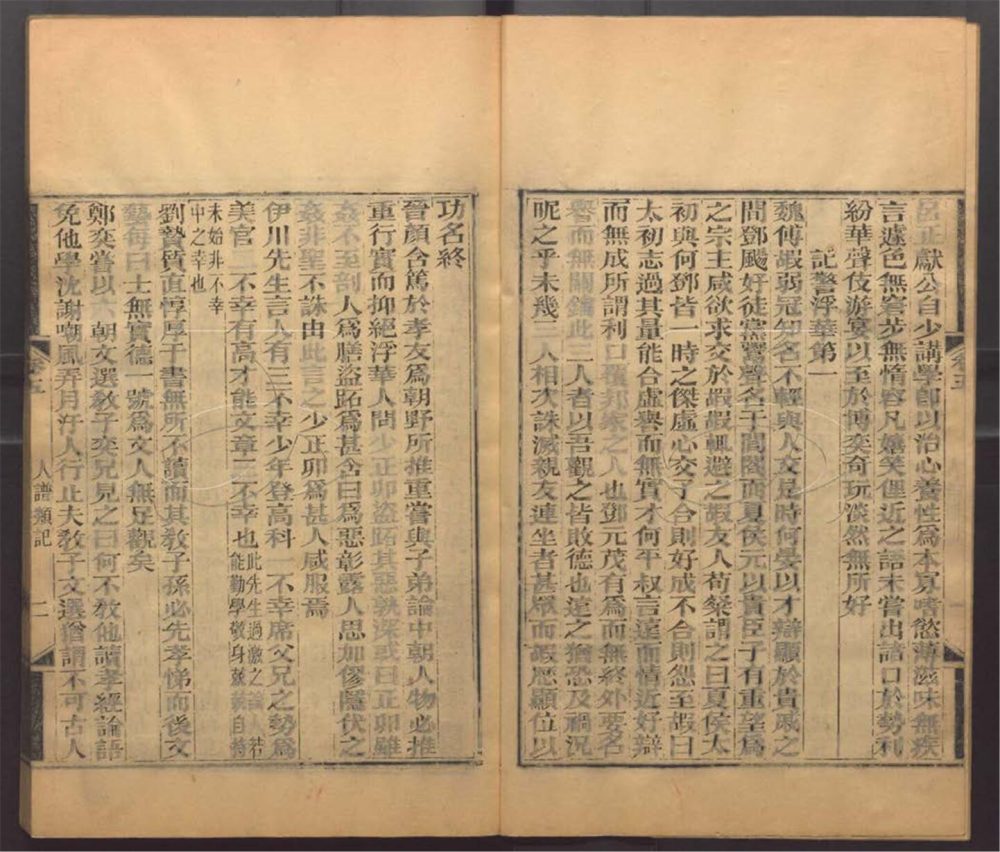 呂正獻公自少講學卽以治心養性爲本寡嗜慾薄滋味無疾
言遽色無窘步無惰容凡嬉笑俚近之語未嘗出諸口於勢利
紛華聲伎游宴以至於博奕奇玩淡然無所好
記警浮華第一
魏傅嘏弱冠知名不輕與人交是時何晏以才辯顯於貴戚之
間鄧颺好徒黨鬻聲名于閭閻而夏侯元以貴臣子有重望爲
之宗主咸欲求交於嘏嘏輒避之嘏友人荀粲謂之曰夏侯太
初與何鄧皆一時之傑虛心交子合則好成不合則怨至嘏曰
太初志過其量能合虛譽而無實才何平叔言遠而情近好辯
而無成所謂利口覆邦家之人也鄧元茂有爲而無終外要名
譽而無關鑰此三人者以吾觀之皆敗德也遠之猶恐及禍況
昵之乎未幾三人相次誅滅親友連坐者甚眾而嘏歷顯位以
功名終
晉顏含篤於孝友爲朝野所推重嘗與子弟論中朝人物必推
重行實而抑絕浮華人問少正卯盜跖其惡孰深或曰正卯雖
姦不至剖人爲膳盜跖爲甚含曰爲惡彰露人思加僇隱伏之
姦非聖不誅由此言之少正卯爲甚人咸服焉
伊川先生言人有三不幸少年登高科一不幸席父兄之勢爲
美官二不幸有高才能文章三不幸也此先生過激之論人若能勤學敬身兢兢自持
未始非不幸中之幸也
劉贄質直惇厚于書無所不讀而其教子孫必先孝悌而後文
藝每曰士無實德一號爲文人無足觀矣
鄭奕嘗以六朝文選教子奕兄見之曰何不教他讀孝經論語
免他學沈謝嘲風弄月汙人行止夫教子文選猶謂不可古人
卷五
人譜類記
二